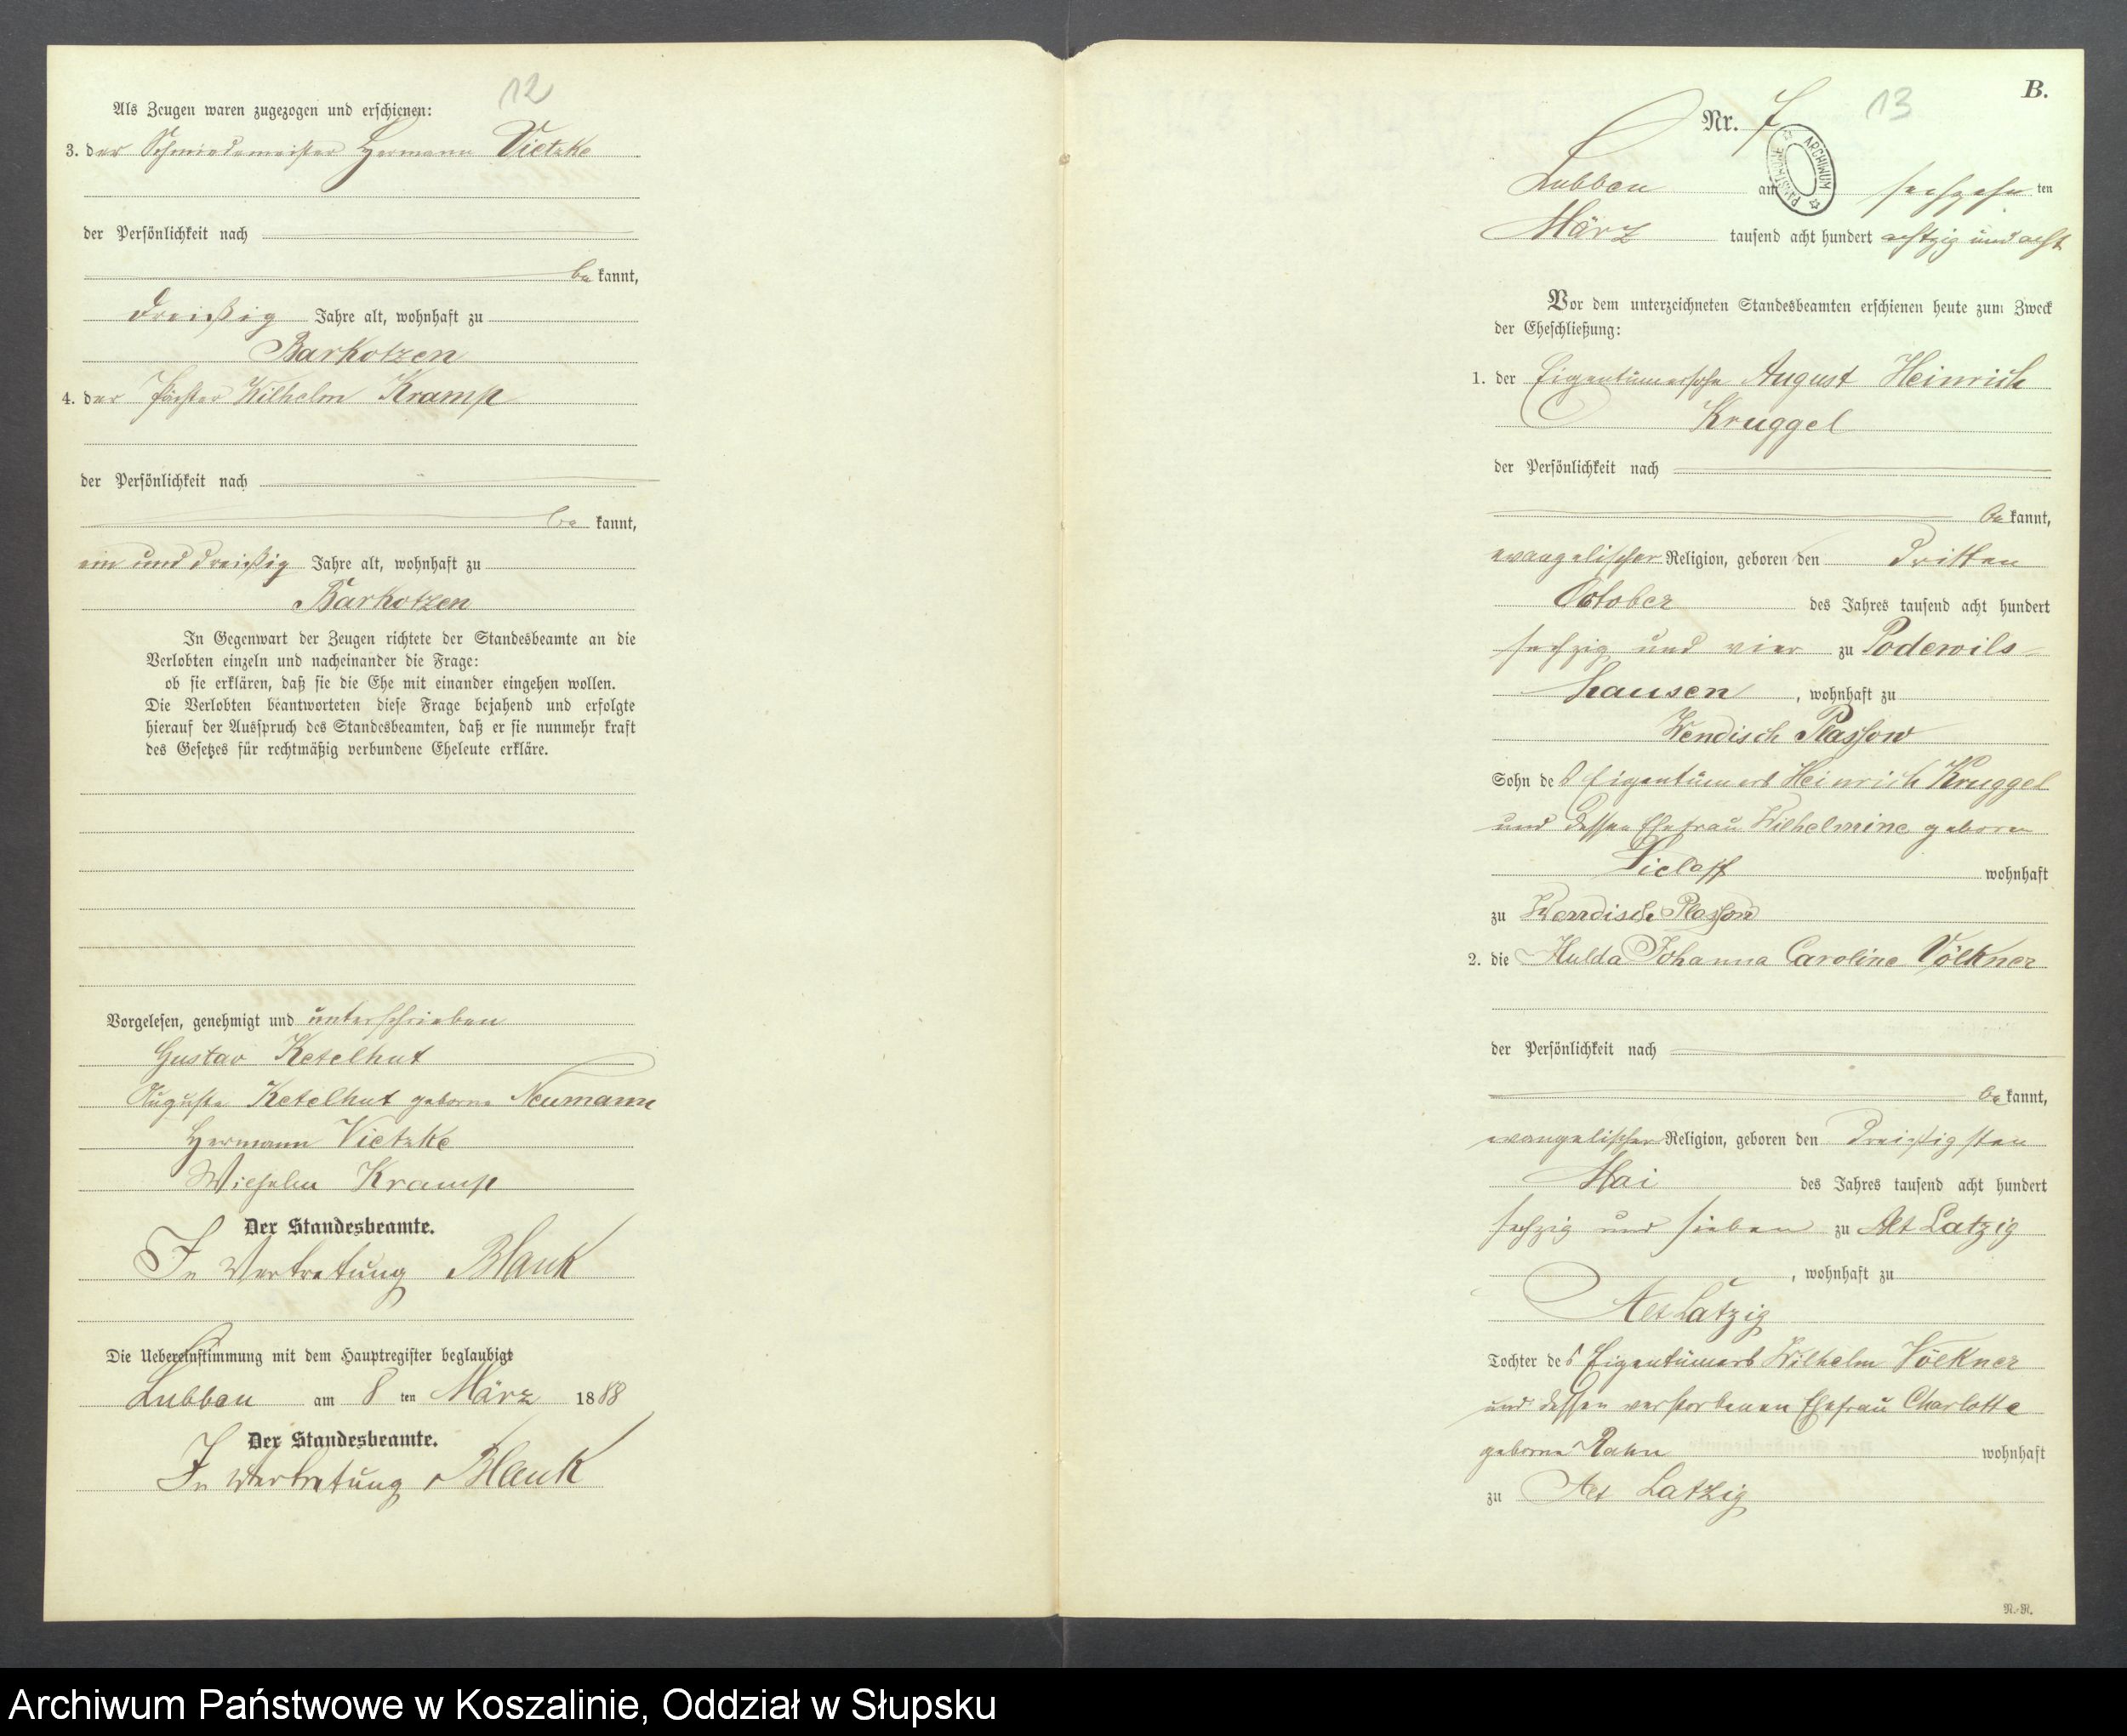 12
Als Zeugen waren zugezogen und erschienen:
3. der Schmiedemeister Hermann Vietzke
der Persönlichkeit nach
be kannt,
dreißig Jahre alt, wohnhaft zu
Barkotzen
4. der Pächter Wilhelm Kramp
der Persönlichkeit nach
be kannt,
ein und dreißig Jahre alt, wohnhaft zu
Barkotzen
In Gegenwart der Zeugen richtete der Standesbeamte an die
Verlobten einzeln und nacheinander die Frage:
ob sie erklären, daß sie die Ehe mit einander eingehen wollen.
Die Verlobten beantworteten diese Frage bejahend und erfolgte
hierauf der Ausspruch des Standesbeamten, daß er sie nunmehr kraft
des Gesetzes für rechtmäßig verbundene Eheleute erkläre.
Vorgelesen, genehmigt und unterschrieben
Gustav Ketelhut
Auguste Ketelhut geborne Neumann
Hermann Vietzke
Wilhelm Kramp
Der Standesbeamte.
In Vertretung Blank
Die Uebereinstimmung mit dem Hauptregister beglaubigt
Lubben am 8 ten März 1888
Der Standesbeamte.
In Vertretung Blank
B.
13
Nr. 7
ARCHIWUM PAŃSTWOWE
Lubben am sechzehn ten
März tausend acht hundert achtzig und acht
Vor dem unterzeichneten Standesbeamten erschienen heute zum Zweck
der Eheschließung:
1. der Eigentümersohn August Heinrich
Kruggel
der Persönlichkeit nach
be kannt,
evangelischer Religion, geboren den dritten
October des Jahres tausend acht hundert
sechzig und vier zu Podewils-
hausen, wohnhaft zu
Wendisch Plassow
Sohn des Eigentümers Heinrich Kruggel
und dessen Ehefrau Wilhelmine geborne
Zielaff wohnhaft
zu Wendisch Plassow
2. die Hulda Johanna Caroline Völkner
der Persönlichkeit nach
be kannt,
evangelischer Religion, geboren den dreißigsten
Mai des Jahres tausend acht hundert
sechzig und sieben zu Alt Latzig
, wohnhaft zu
Alt Latzig
Tochter des Eigentümers Wilhelm Völkner
und dessen verstorbenen Ehefrau Charlotte
geborne Rahn wohnhaft
zu Alt Latzig
N.-N.
Archiwum Państwowe w Koszalinie, Oddział w Słupsku